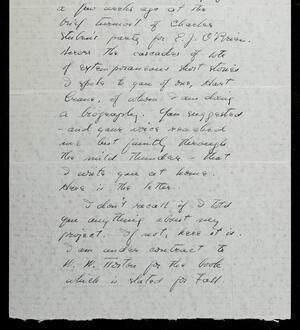 a few weeks ago at the
brief turmoil of Charles
Studin's party for E. J. O'Brien.
Across the cascades of lots
of extemporaneous short stories
I spoke to you of one, Hart
Crane, of whom I am doing
a biography. You suggested
- and your voice reached
me but faintly through
the mild thunder - that
I write you at home.
Here is the letter.
I don't recall if I told
you anything about my
project. If not, here it is.
I am under contract to
W. W. Norton for the book
which is slated for Fall